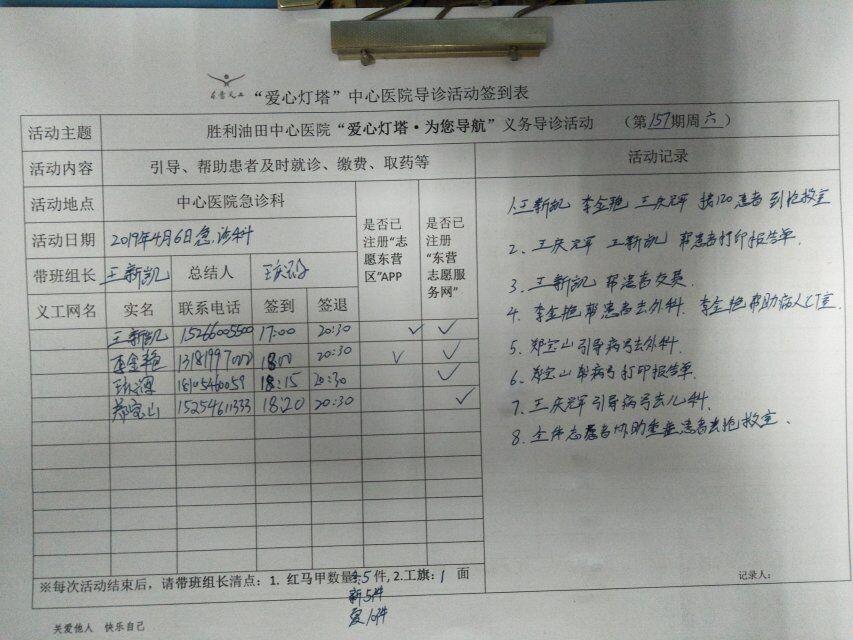 东营义工
“爱心灯塔”中心医院导诊活动签到表
活动主题 胜利油田中心医院“爱心灯塔·为您导航”义务导诊活动 （第157期周六）
活动内容 引导、帮助患者及时就诊、缴费、取药等 活动记录
活动地点 中心医院急诊科
活动日期 2019年4月6日急诊科
是否已注册“志愿东营区”APP
是否已注册“东营志愿服务网”
带班组长 王新凯 总结人
义工网名 实名 联系电话 签到 签退
王新凯 15266005500 17:00 20:30 ✓ ✓
李金艳 13181997002 18:00 20:30 ✓ ✓
18:15 20:30 ✓
郑宝山 15254611333 18:20 20:30 ✓
1.王新凯 李金艳 王庆军 接120患者到抢救室
2、王庆军 王新凯 帮患者打印报告单.
3、王新凯 帮患者交费.
4、李金艳帮患者去外科. 李金艳帮助病人CT室.
5、郑宝山引导病号去外科.
6、郑宝山帮病号打印报告单.
7、王庆军引导病号去儿科.
8、全体志愿者协助重症患者去抢救室.
※每次活动结束后，请带班组长清点：1. 红马甲数量:5件, 2.工旗：1 面
新5件
爱10件
记录人：
关爱他人 快乐自己